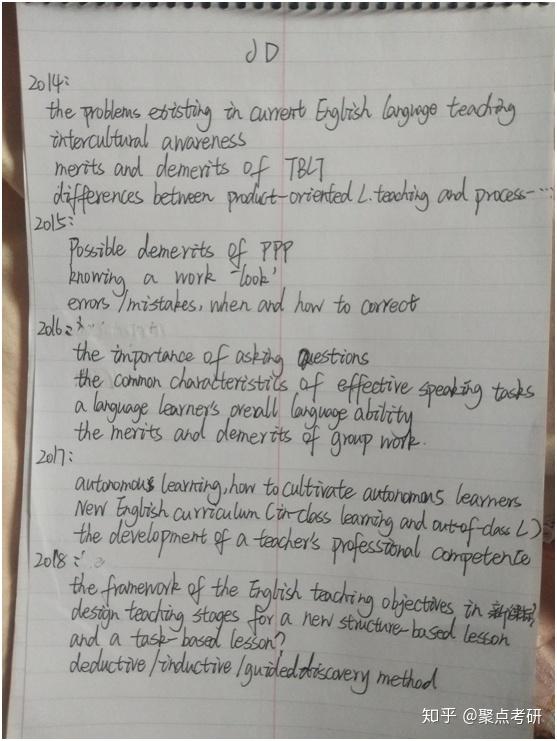 JD
2014:
the problems existing in current English language teaching
intercultural awareness
merits and demerits of TBLT
differences between product-oriented L. teaching and process-...
2015:
Possible demerits of PPP
knowing a work "look'
errors/mistakes, when and how to correct
2016:
the importance of asking questions
the common characteristics of effective speaking tasks
a language learner's overall language ability
the merits and demerits of group work.
2017:
autonomous learning, how to cultivate autonomous learners
New English curriculum (in-class learning and out-of-class L)
the development of a teacher's professional competence
2018:
the framework of the English teaching objectives in 新课标?
design teaching stages for a new structure-based lesson
and a task-based lesson?
deductive/inductive/guided discovery method
知乎 @聚点考研